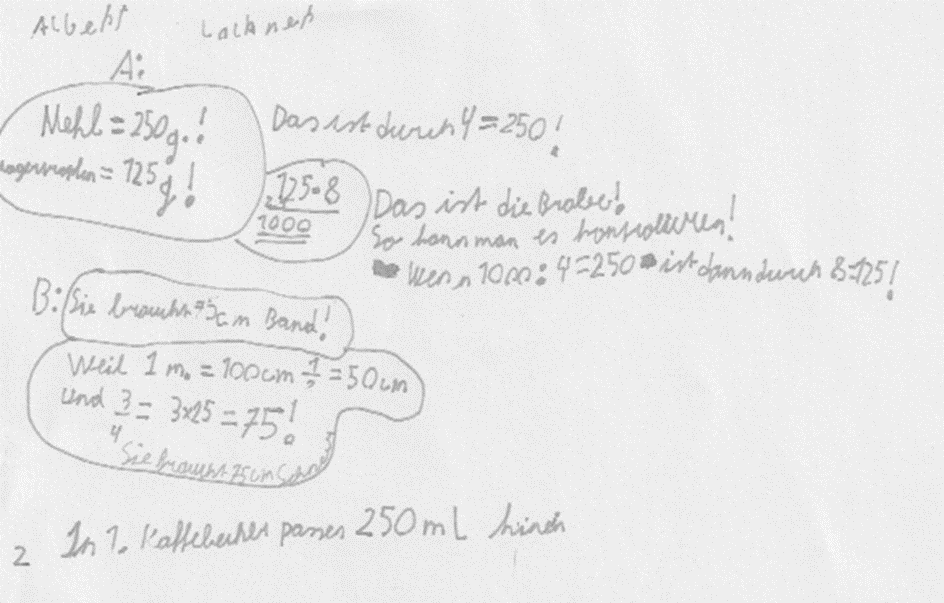 Albert Lachner
A:
Mehl = 250g.!
= 125g!
Das ist durch 4 = 250!
125·8
1000
Das ist die Probe!
So kann man es kontrollieren!
Wenn 1000 : 4 = 250 ist dann durch 8 = 125!
B: Sie braucht 75cm Band!
Weil 1 m. = 100cm 1/2 = 50cm
und 3/4 = 3x25 = 75!
Sie braucht 75cm
2 In 1. Kaffebecher passen 250 ml hinein